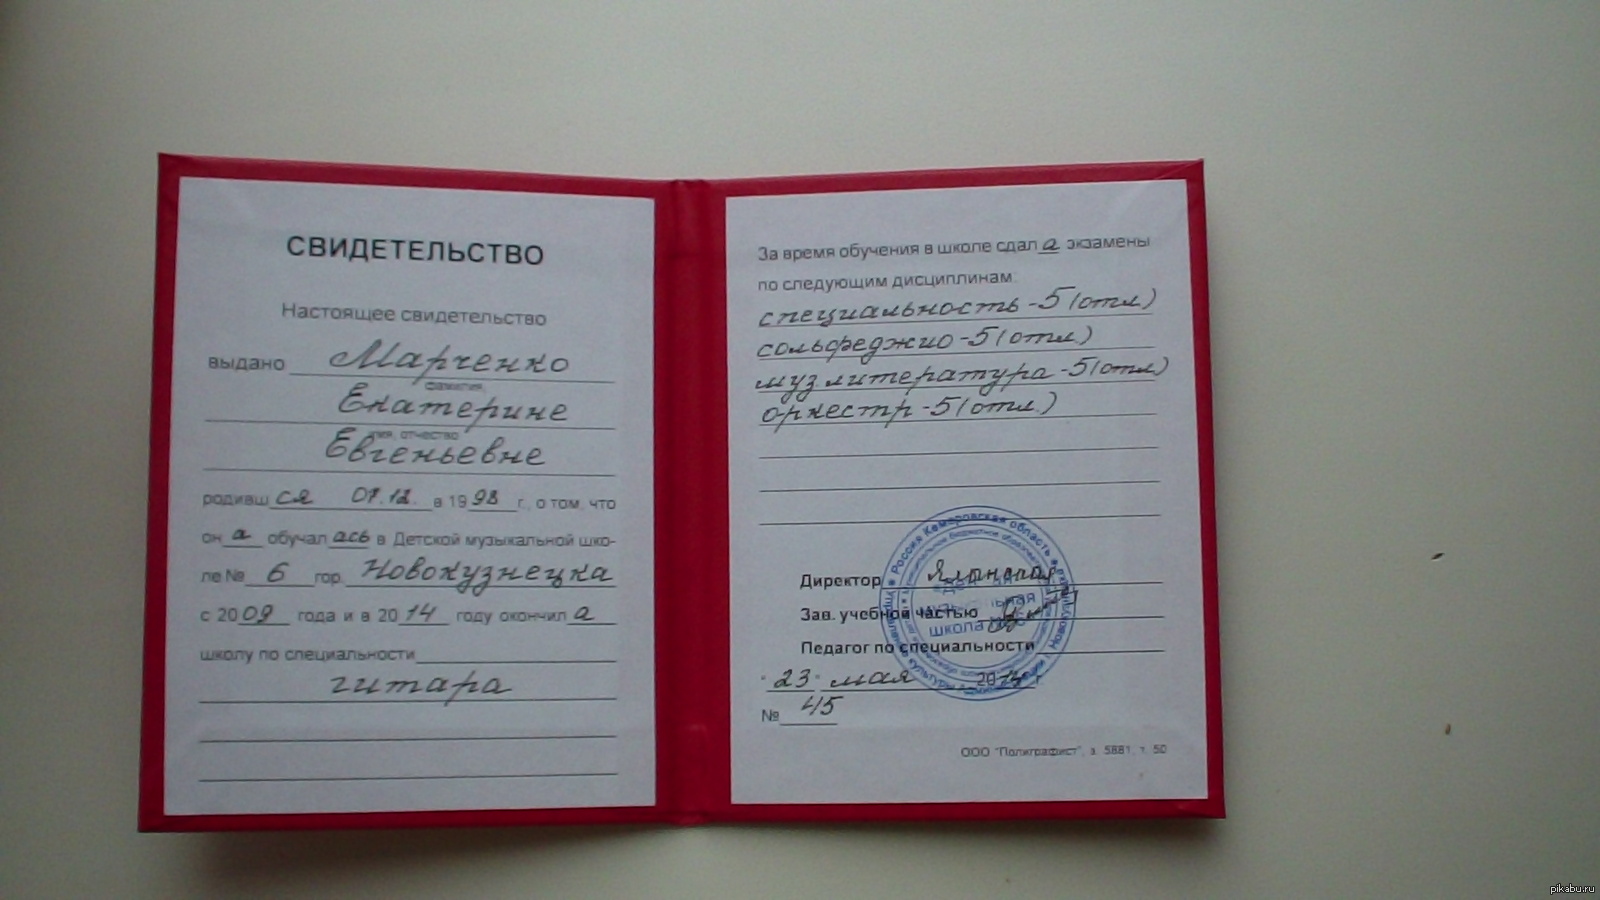 СВИДЕТЕЛЬСТВО
Настоящее свидетельство
выдано Марченко
фамилия
Екатерине
имя, отчество
Евгеньевне
родивш ся 07.12. в 1998 г., о том, что
он а обучал ась в Детской музыкальной шко-
ле № 6 гор. Новокузнецка
с 2009 года и в 2014 году окончил а
школу по специальности
гитара
За время обучения в школе сдал а экзамены
по следующим дисциплинам:
специальность -5 (отл)
сольфеджио -5 (отл.)
муз. литература -5 (отл)
оркестр -5 (отл.)
Директор
Зав. учебной частью
Педагог по специальности
"23" мая 2014 г.
№ 45
Россия Кемеровская область
музыкальная
школа
ООО "Полиграфист", з. 5881, т. 50
pikabu.ru